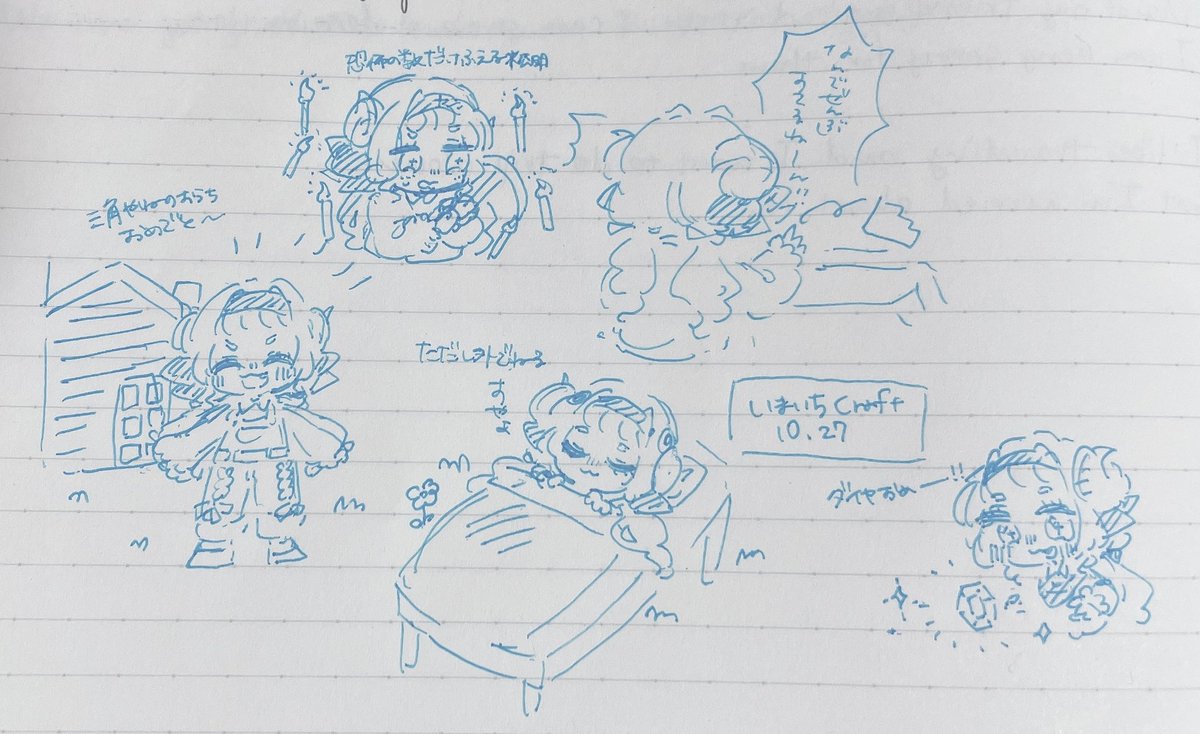 恐怖の数だけふえる松明
なんでぜんぶ
すてるねーん!!
三角やねのおうち
おめでと〜
ただし外でねる
すやすや
しはいちCraft
10.27
ダイヤおめ
!!